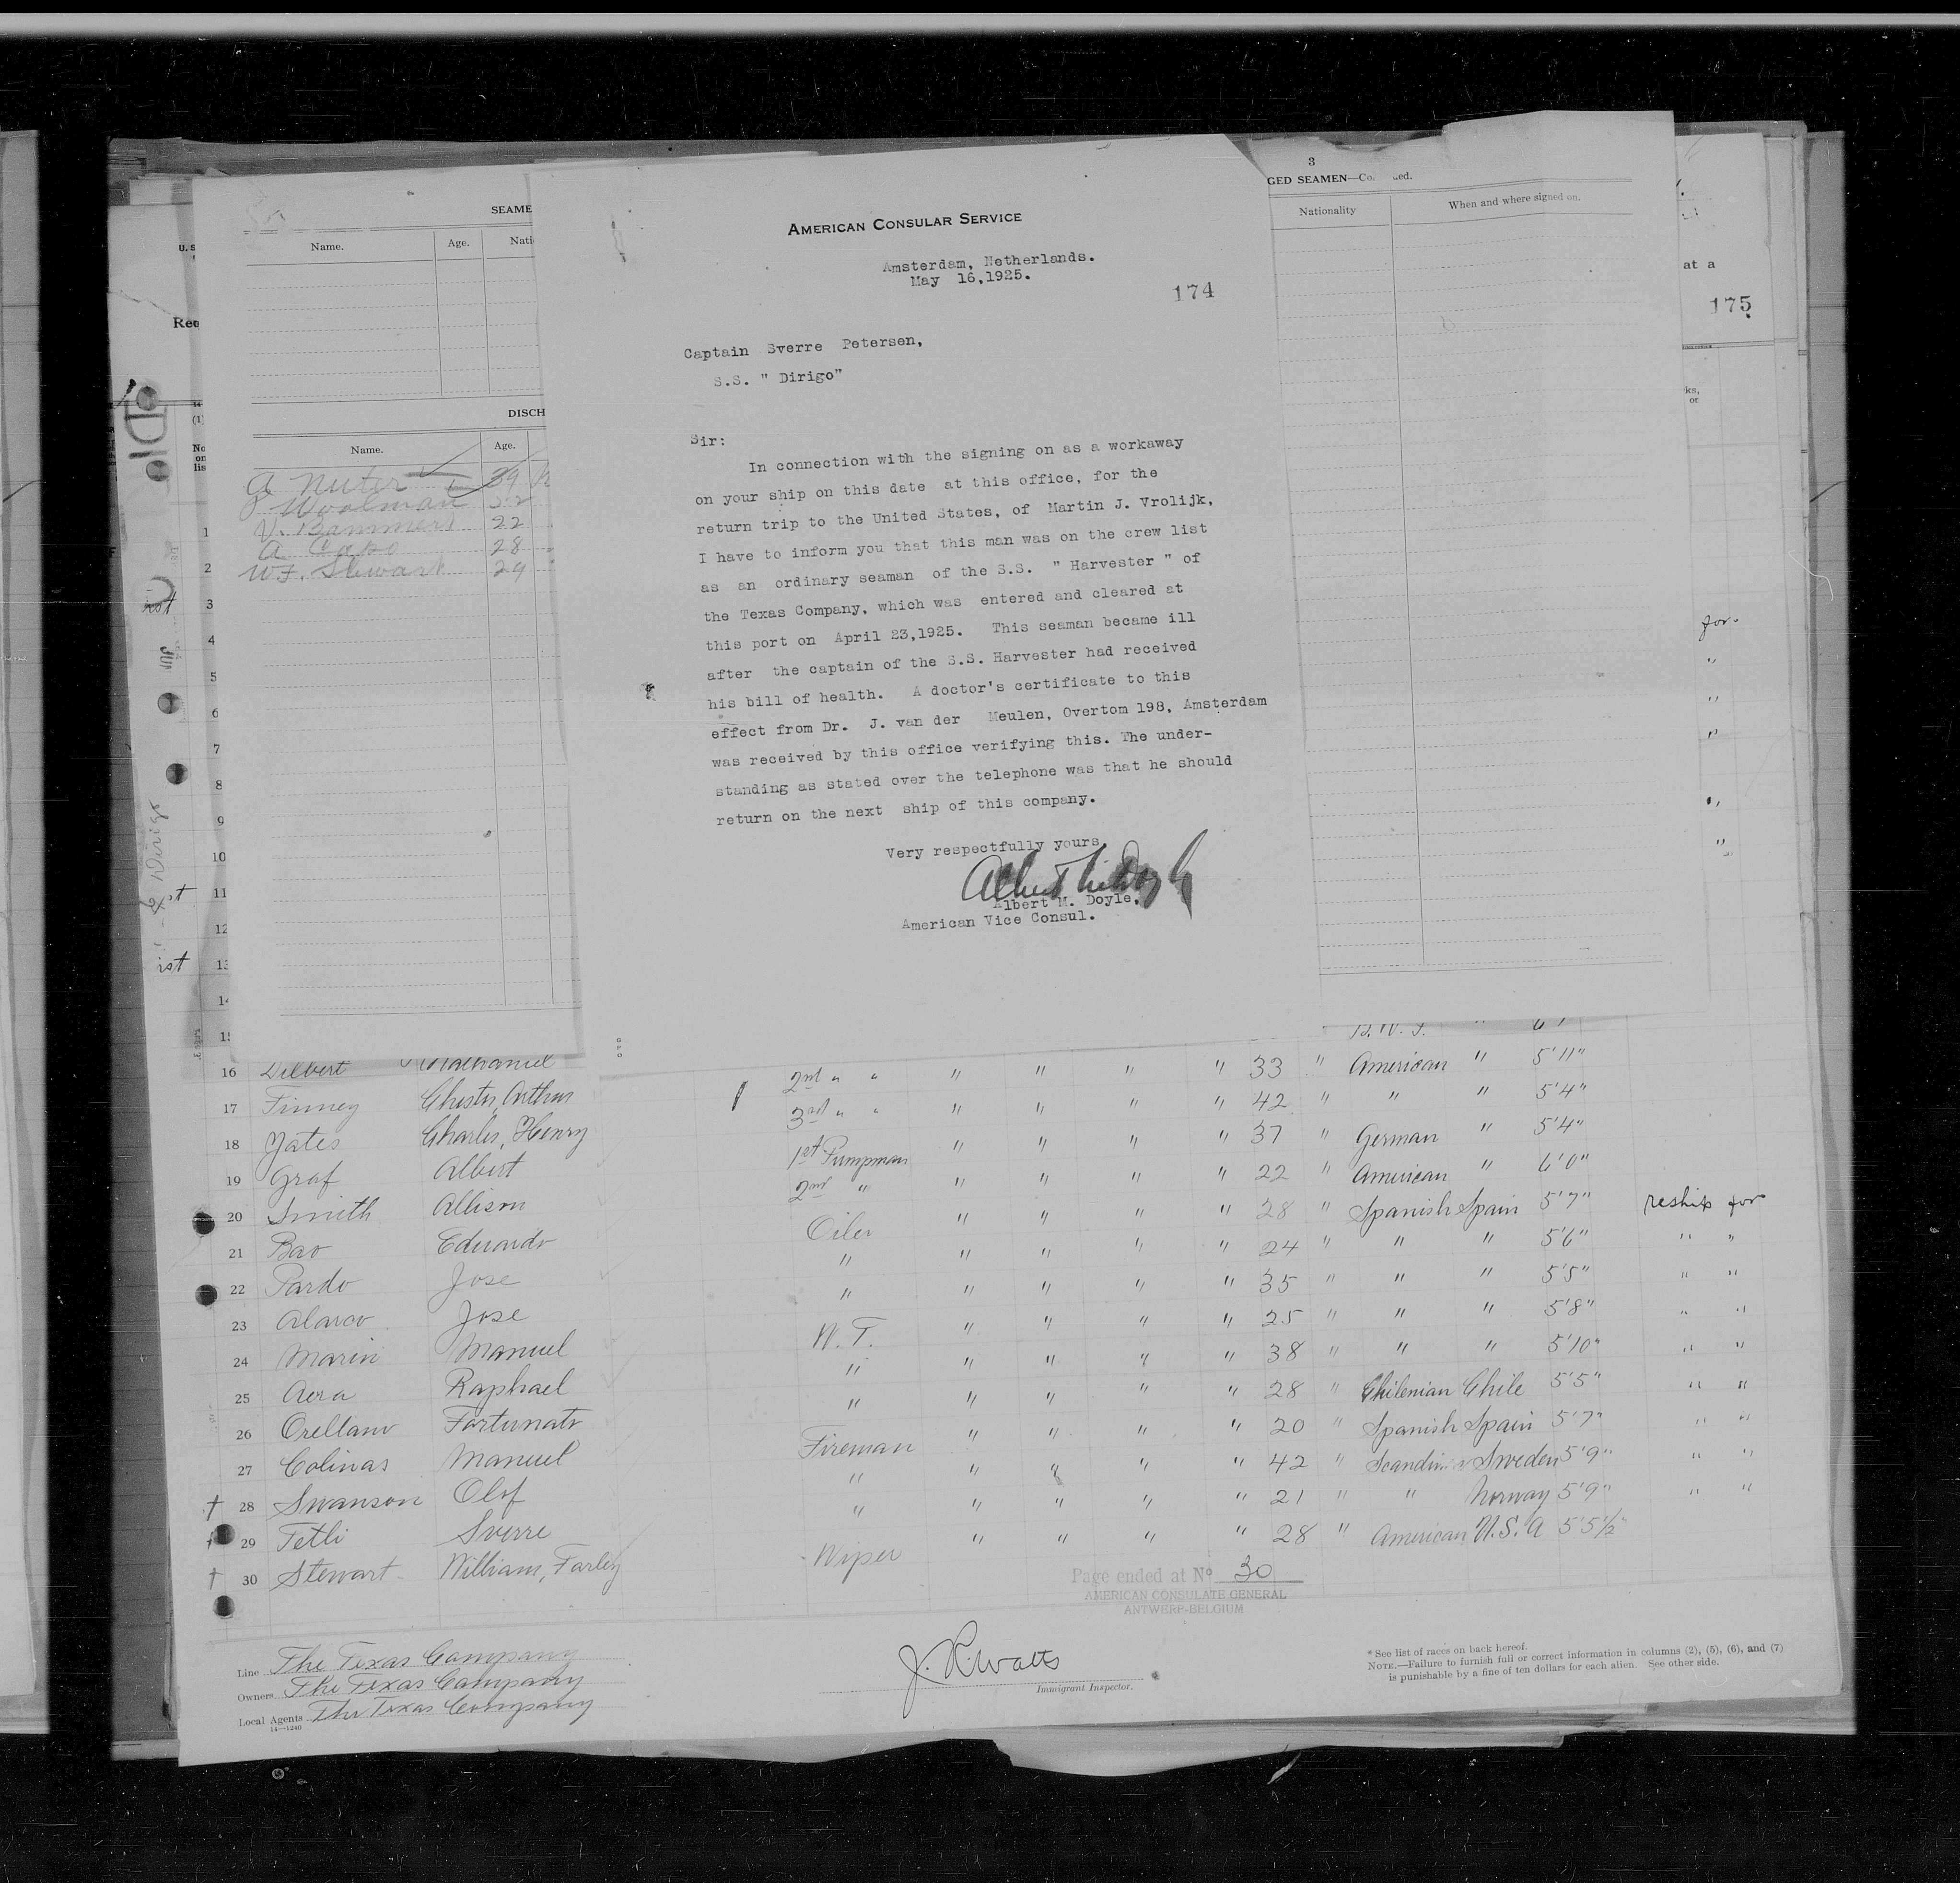 SEAME
Name.
Age.
Nati
DISCH
Name.
Age.
39
Woolman 22
22
A. Capo 28
W.F. Stewart 29
AMERICAN CONSULAR SERVICE
Amsterdam, Netherlands.
May 16,1925.
174
Captain Sverre Petersen,
S.S. " Dirigo"
Sir:
In connection with the signing on as a workaway
on your ship on this date at this office, for the
return trip to the United States, of Martin J. Vrolijk,
I have to inform you that this man was on the crew list
as an ordinary seaman of the S.S. " Harvester " of
the Texas Company, which was entered and cleared at
this port on April 23,1925. This seaman became ill
after the captain of the S.S. Harvester had received
his bill of health. A doctor's certificate to this
effect from Dr. J. van der Meulen, Overtom 198, Amsterdam
was received by this office verifying this. The under-
standing as stated over the telephone was that he should
return on the next ship of this company.
Very respectfully yours,
Albert M. Doyle,
American Vice Consul.
3
GED SEAMEN—Co ed.
Nationality
When and where signed on.
at a
175
for
16 Delbert Nathaniel 2nd " " " " " " 33 " American " 5'11"
17 Finney Chester, Arthur 3rd " " " " " " 42 " " " 5'4"
18 Yates Charles, Henry 1st Pumpman " " " " 37 " German " 5'4"
19 Graf Albert 2nd " " " " " 22 " American " 6'0"
20 Smith Allison Oiler " " " " 28 " Spanish Spain 5'7" reship for
21 Bao Eduardo " " " " " 24 " " " 5'6" " "
22 Pardo Jose " " " " " 35 " " " 5'5" " "
23 Alarco Jose W.T. " " " " 25 " " " 5'8" " "
24 Marin Manuel " " " " " 38 " " " 5'10" " "
25 Aera Raphael " " " " " 28 " Chilenian Chile 5'5" " "
26 Orellano Fortunato Fireman " " " " 20 " Spanish Spain 5'7" " "
27 Colinas Manuel " " " " " 42 " Sweden 5'9" " "
28 Swanson Olof " " " " " 21 " " Norway 5'9" " "
29 Tetli Sverre " " " " 28 " American U.S.A 5'5½"
30 Stewart William, Farley Wiper
Page ended at No 30
AMERICAN CONSULATE GENERAL
ANTWERP-BELGIUM
Line The Texas Company
Owners The Texas Company
Local Agents The Texas Company
14—1240
J. R. Watts
Immigrant Inspector.
* See list of races on back hereof.
NOTE.—Failure to furnish full or correct information in columns (2), (5), (6), and (7)
is punishable by a fine of ten dollars for each alien. See other side.